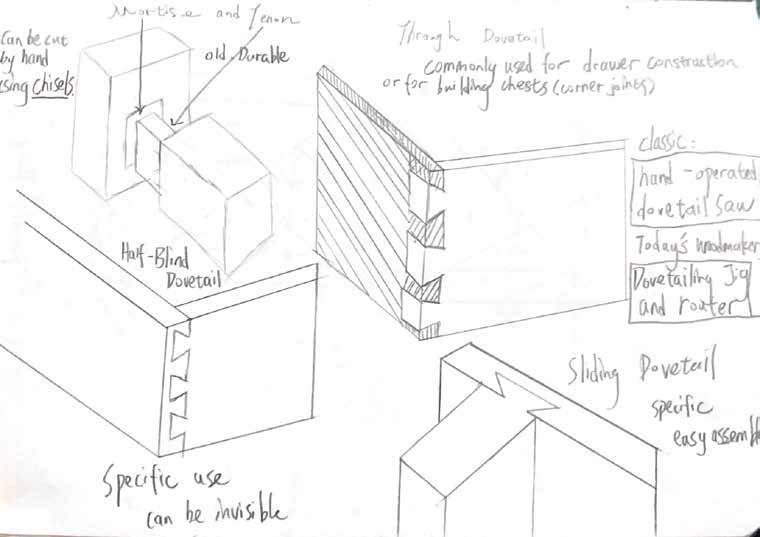 Mortise and Tenon
Can be cut
by hand
using chisels
old. Durable
Through Dovetail
commonly used for drawer construction
or for building chests (corner joints)
classic:
hand-operated
dovetail saw
Today's woodmaker
Dovetailing Jig
and router
Half-Blind
Dovetail
Specific use
can be invisible
Sliding Dovetail
specific
easy assembl